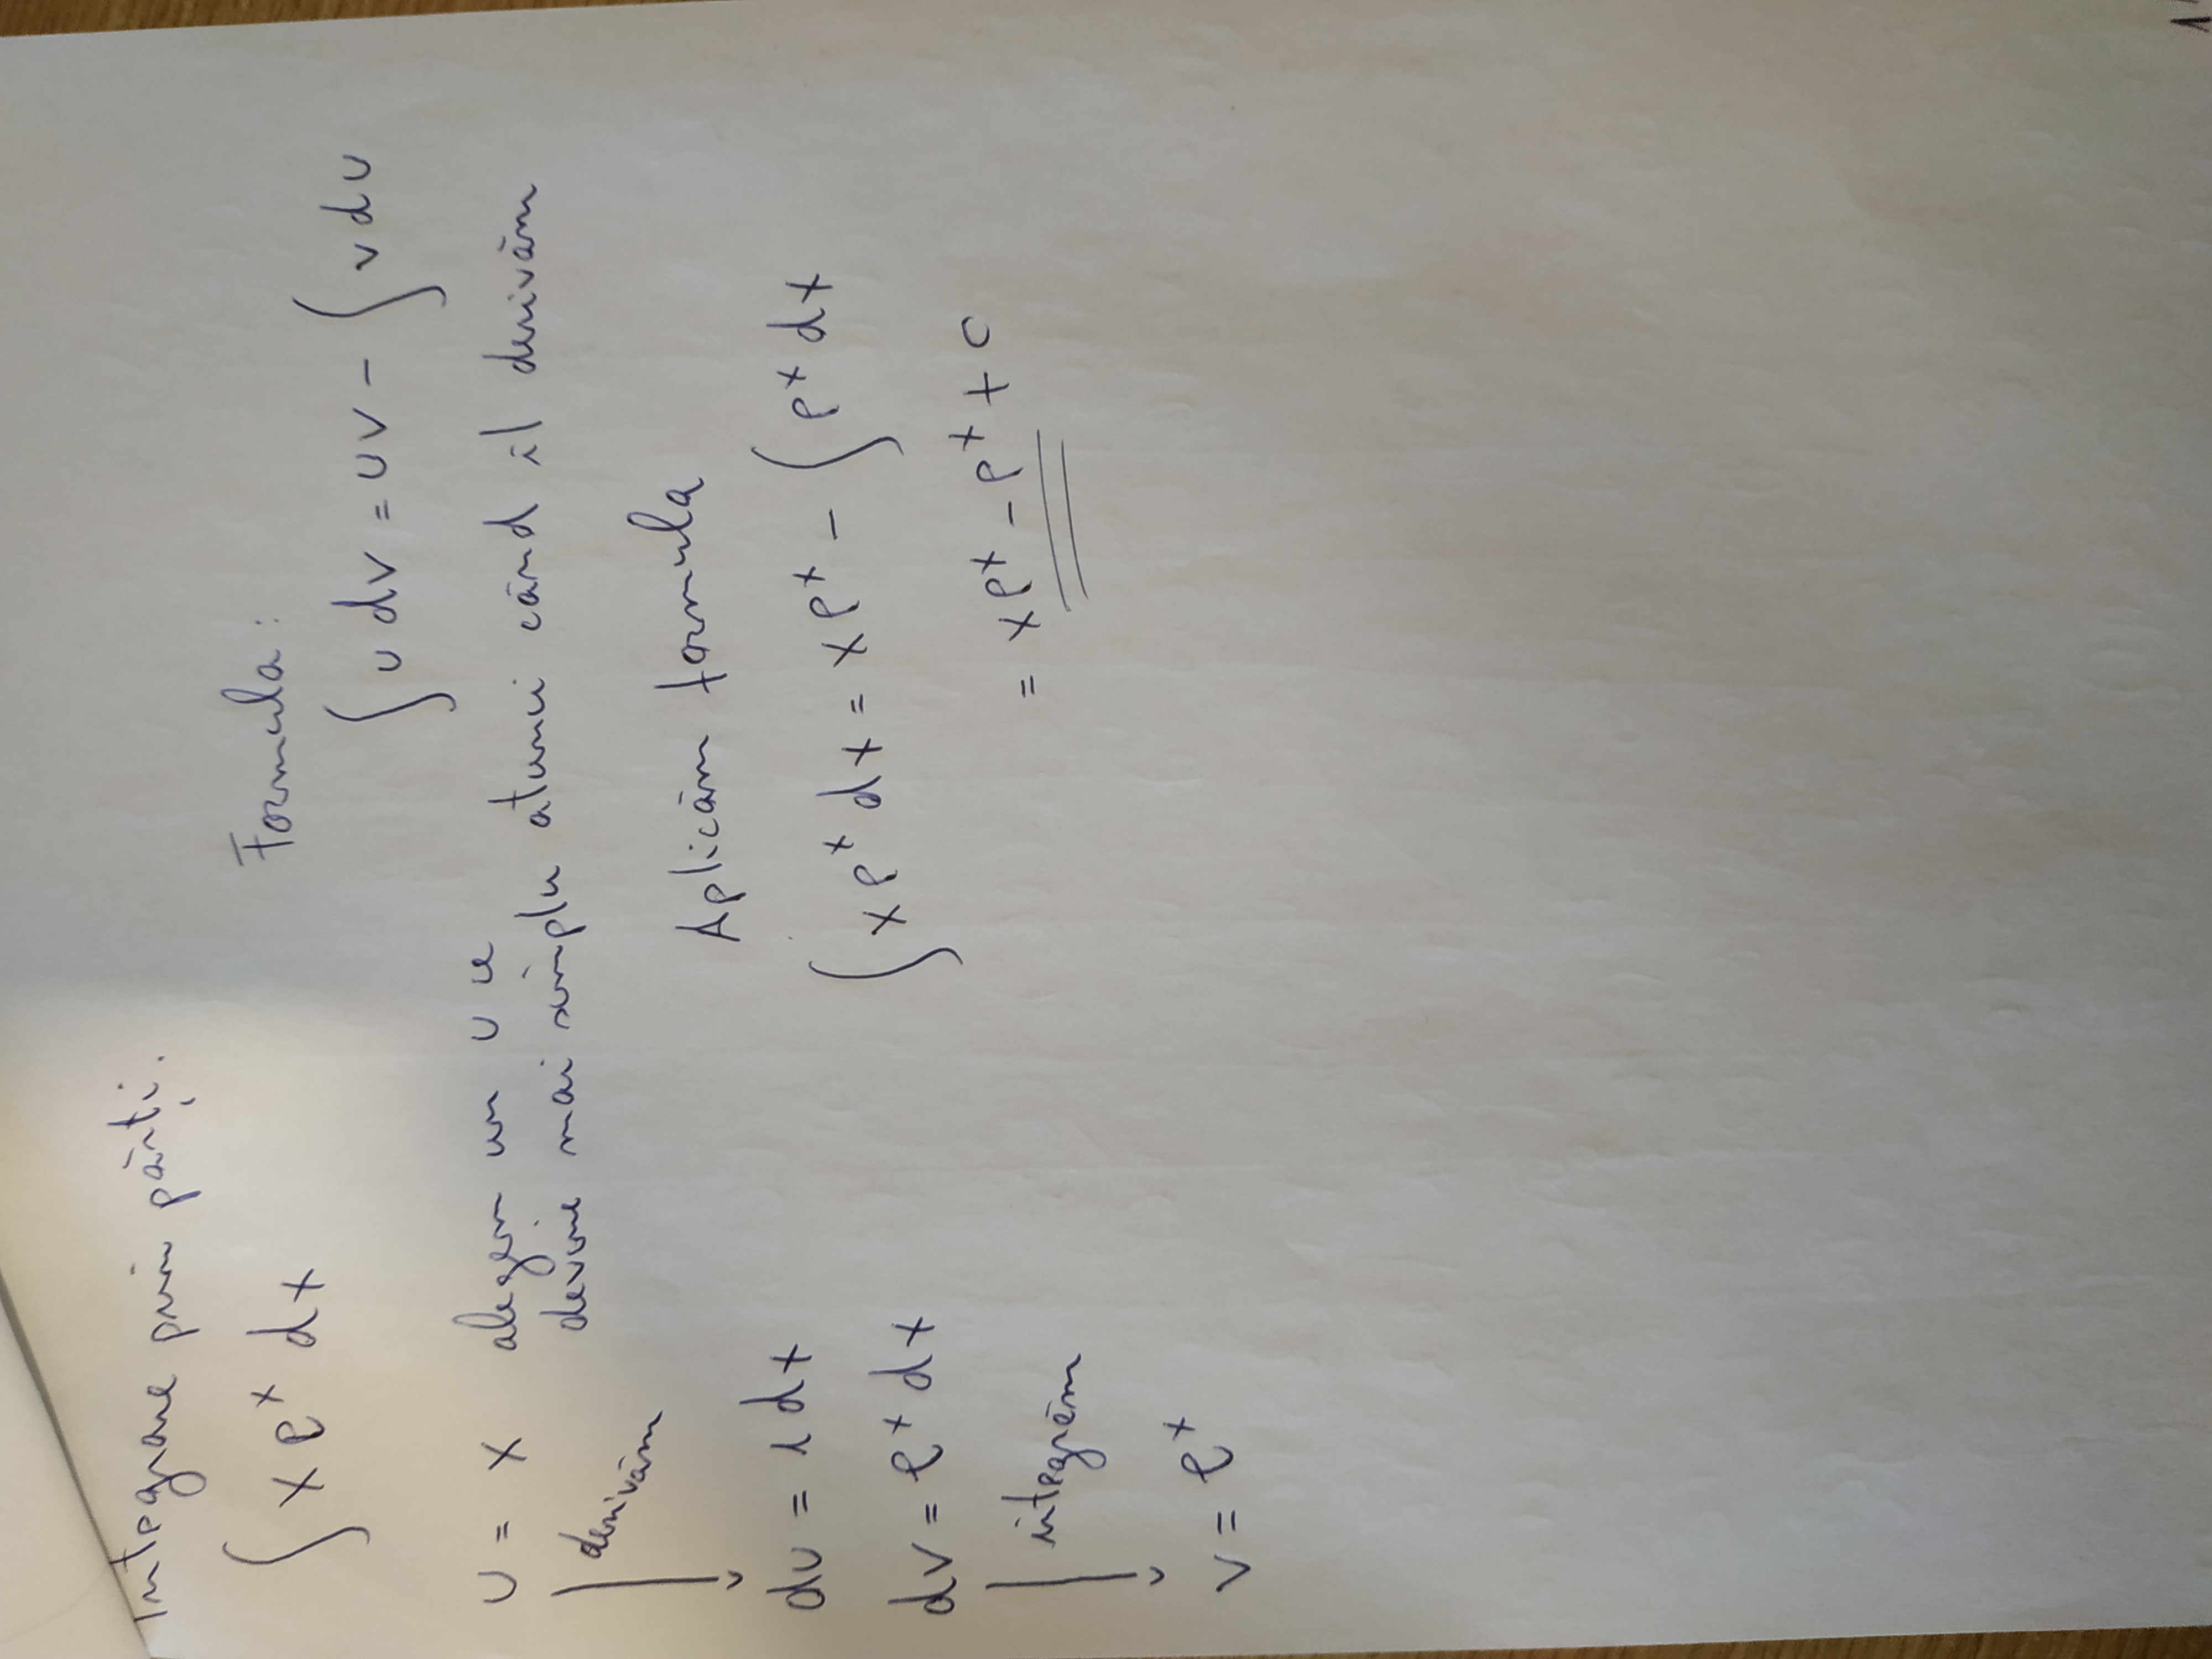 Integrare prin părți.
∫ x e^x dx
Formula:
∫ u dv = uv - ∫ v du
u = x alegem un u ce
devine mai simplu atunci când îl derivăm
derivăm
du = 1 dx
dv = e^x dx
integrăm
v = e^x
Aplicăm formula
∫ x e^x dx = x e^x - ∫ e^x dx
= x e^x - e^x + C